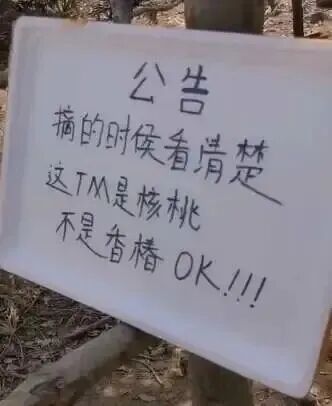 公告
摘的时候看清楚
这TM是核桃
不是香椿OK!!!